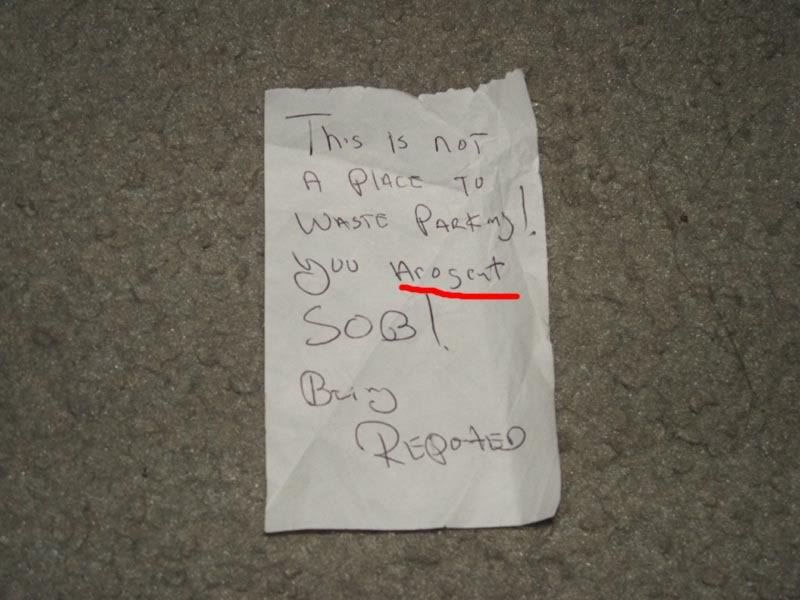 This is not
A Place to
Waste Parking!
You Arogent
SOB!
Being
Repoted